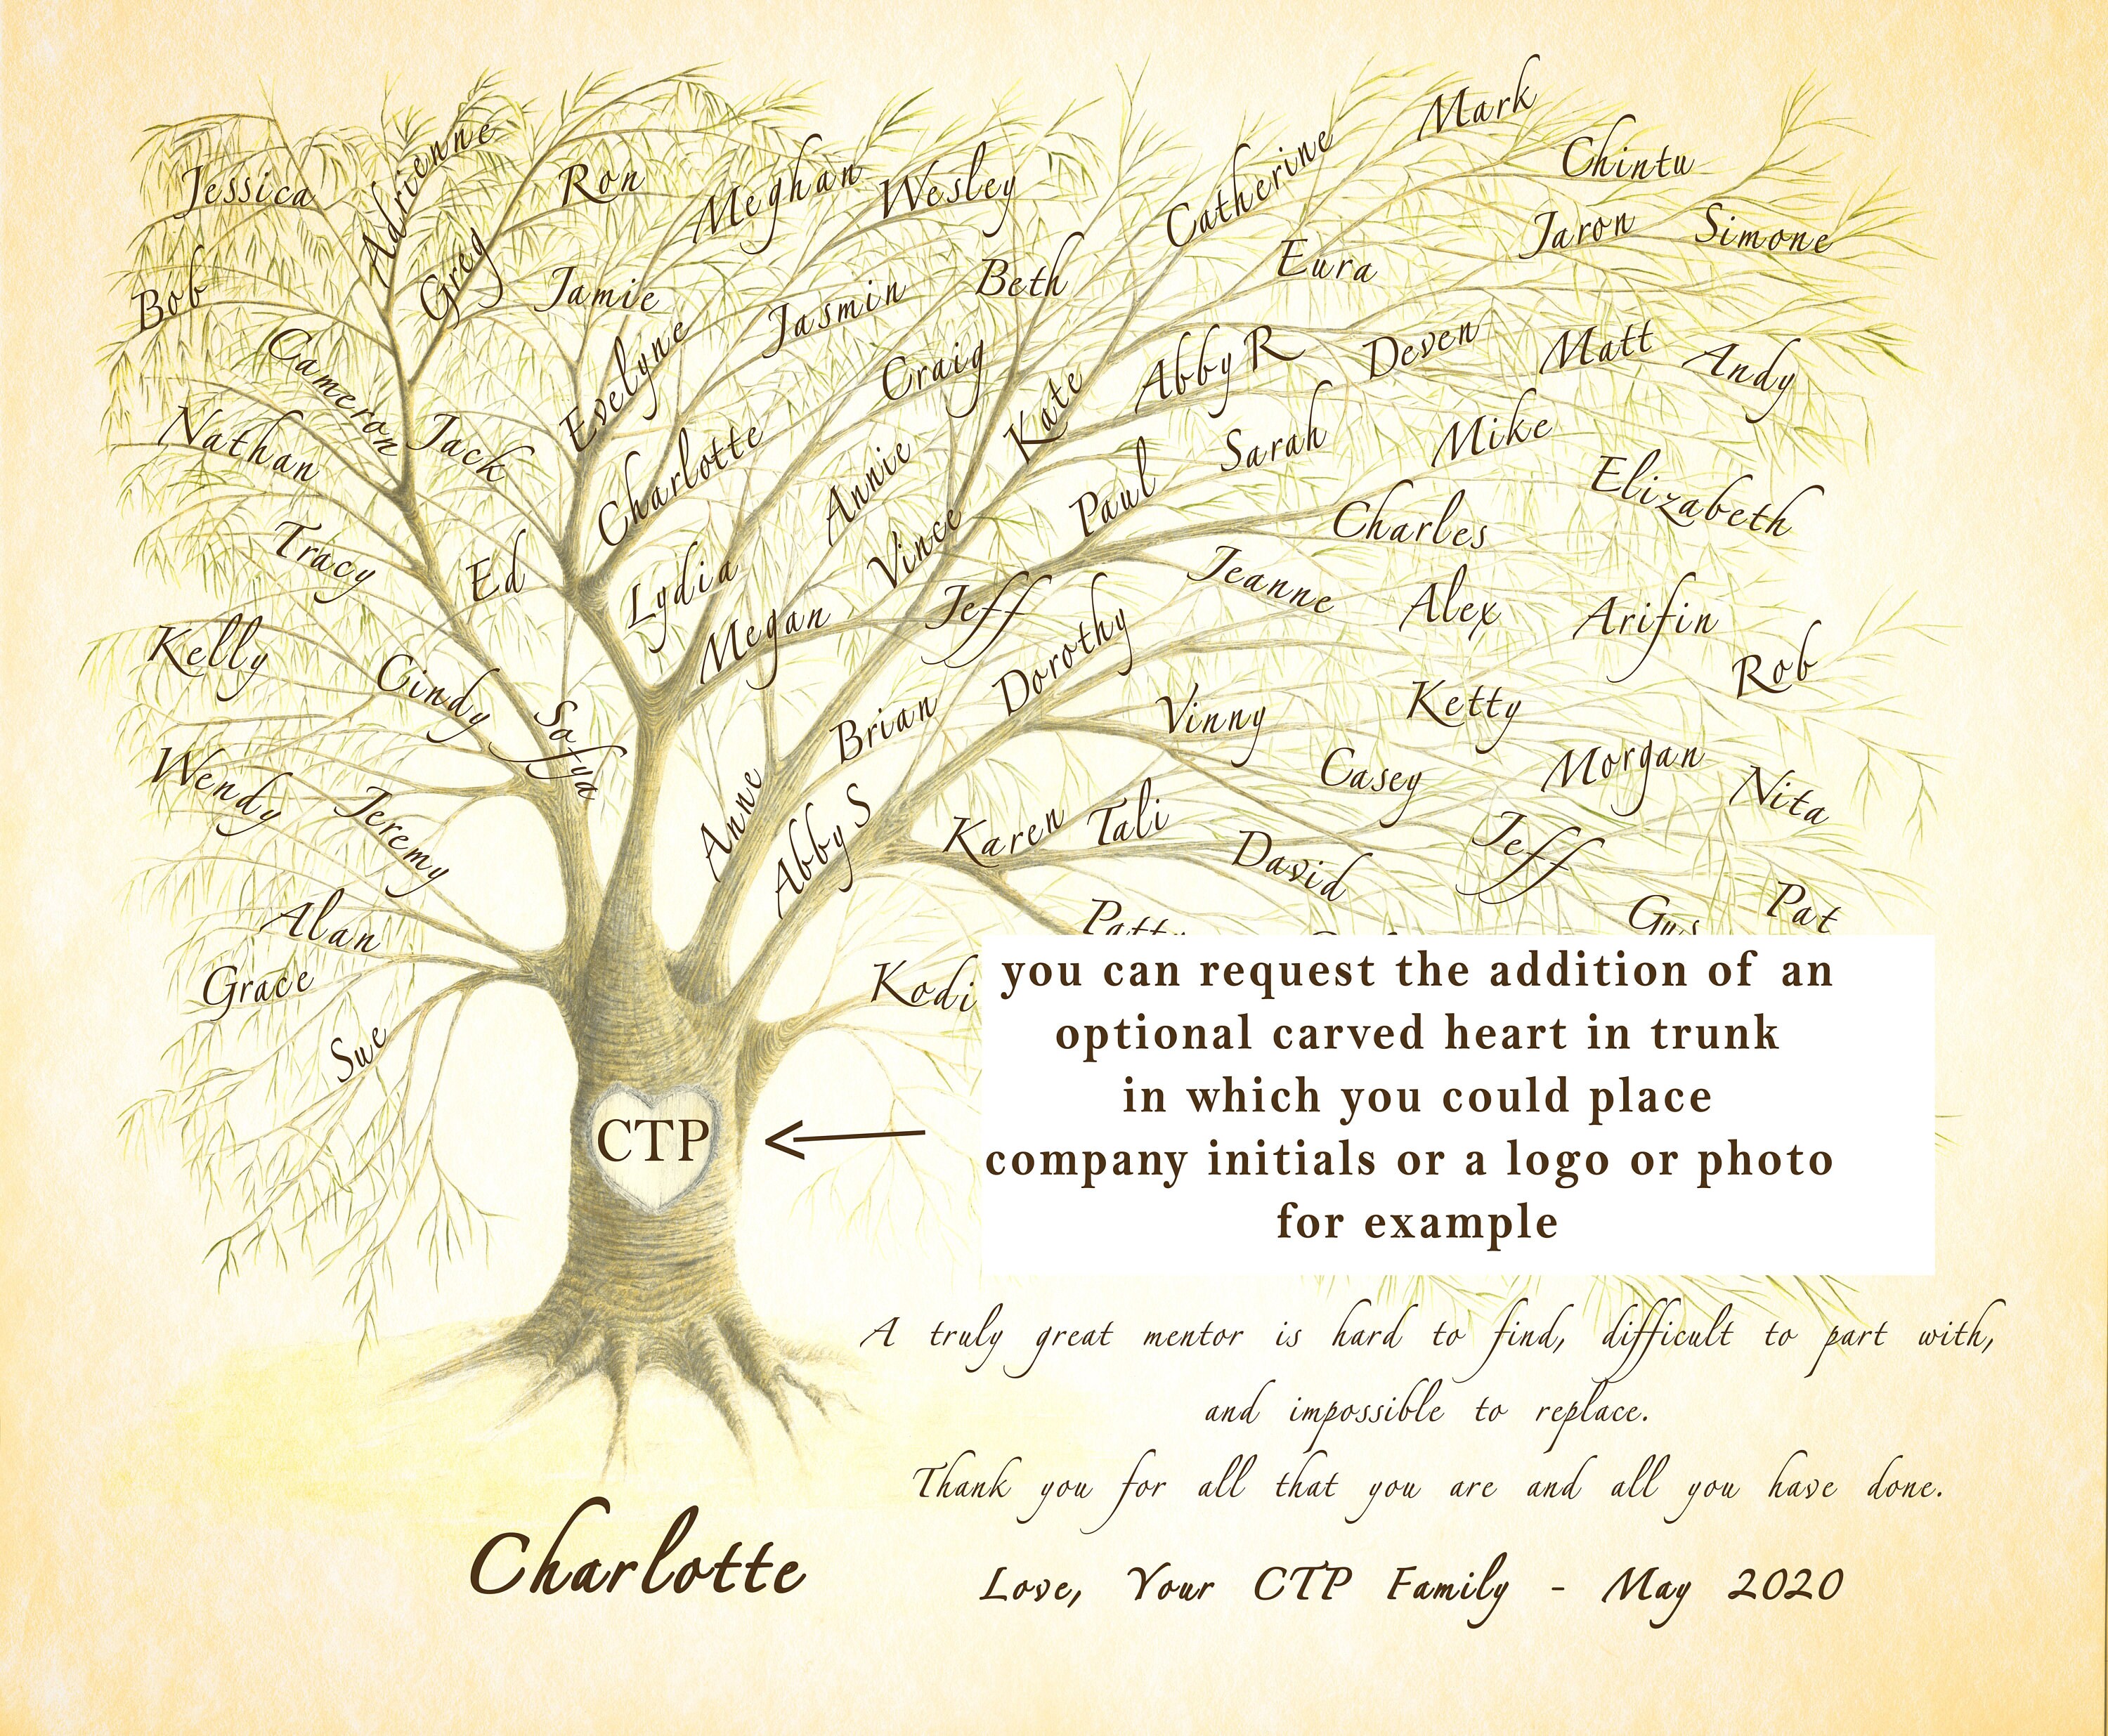 Mark
Adrienne
Chintu
Jessica
Ron
Meghan
Wesley
Catherine
Jaron
Simone
Bob
Greg
Jamie
Jasmin
Beth
Eura
Cameron
Evelyne
Craig
Kate
Abby R
Deven
Matt
Andy
Nathan
Jack
Charlotte
Annie
Sarah
Mike
Paul
Elizabeth
Tracy
Ed
Lydia
Vince
Charles
Jeanne
Kelly
Megan
Jeff
Alex
Arifin
Cindy
Sofya
Dorothy
Rob
Brian
Vinny
Ketty
Wendy
Jeremy
Anne
Abby S
Karen
Tali
Casey
Morgan
Nita
David
Jeff
Alan
Patty
Gus
Pat
Grace
Kodi
Sue
you can request the addition of an
optional carved heart in trunk
in which you could place
company initials or a logo or photo
for example
CTP
A truly great mentor is hard to find, difficult to part with,
and impossible to replace.
Thank you for all that you are and all you have done.
Charlotte
Love, Your CTP Family - May 2020